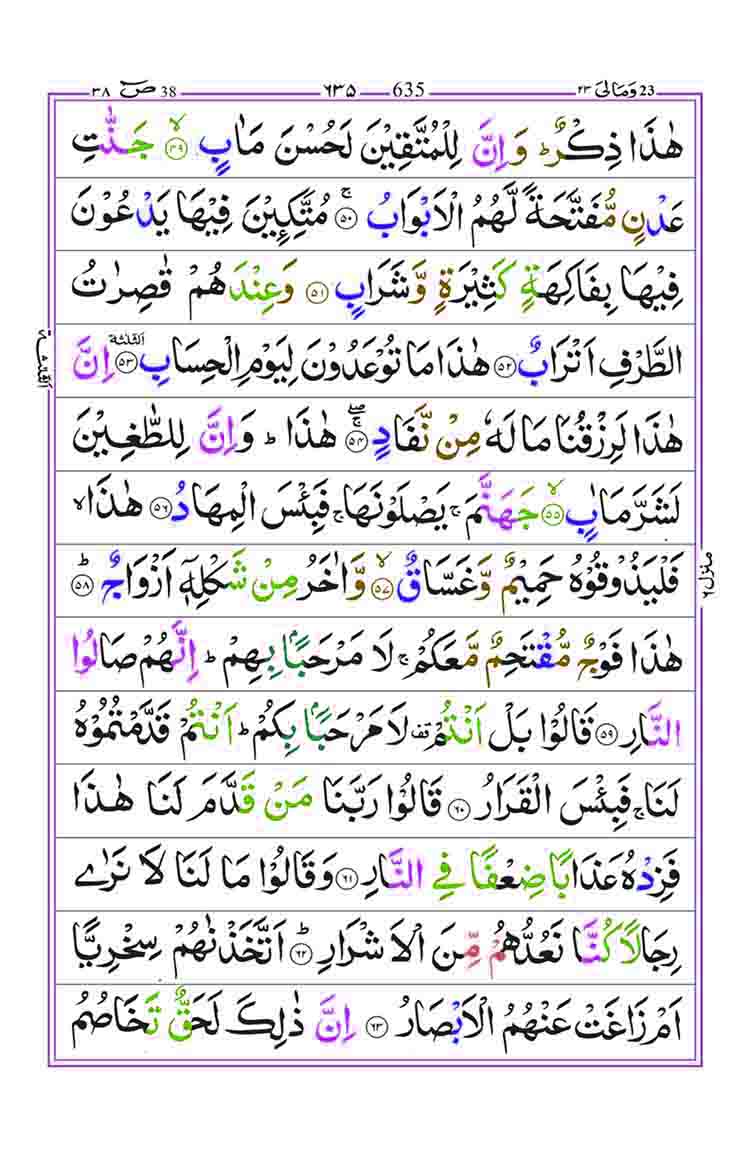 ٣٨ صٓ 38 ٦٣٥ 635 ٢٣ وَمَالِیَ 23
هٰذَا ذِكْرٌ ؕ وَاِنَّ لِلْمُتَّقِيْنَ لَحُسْنَ مَاٰبٍ ۙ‏﴿٤٩﴾ جَنّٰتِ
عَدْنٍ مُّفَتَّحَةً لَّهُمُ الْاَبْوَابُ‌ ۚ‏﴿٥٠﴾ مُتَّكِـِٕيْنَ فِيْهَا يَدْعُوْنَ
فِيْهَا بِفَاكِهَةٍ كَثِيْرَةٍ وَّشَرَابٍ‏﴿٥١﴾ وَعِنْدَهُمْ قٰصِرٰتُ
الطَّرْفِ اَتْرَابٌ‏﴿٥٢﴾ هٰذَا مَا تُوْعَدُوْنَ لِيَوْمِ الْحِسَابِ‏﴿٥٣﴾ الثلٰثة اِنَّ
هٰذَا لَرِزْقُنَا مَا لَهٗ مِنْ نَّفَادٍ ۖۚ‏﴿٥٤﴾ هٰذَا‌ ؕ وَاِنَّ لِلطّٰغِيْنَ
لَشَرَّ مَاٰبٍ ۙ‏﴿٥٥﴾ جَهَنَّمَ‌ ۚ يَصْلَوْنَهَا‌ ۚ فَبِئْسَ الْمِهَادُ‏﴿٥٦﴾ هٰذَا ۙ
فَلْيَذُوْقُوْهُ حَمِيْمٌ وَّغَسَّاقٌ ۙ‏﴿٥٧﴾ وَّاٰخَرُ مِنْ شَكْلِهٖۤ اَزْوَاجٌ ؕ‏﴿٥٨﴾
هٰذَا فَوْجٌ مُّقْتَحِمٌ مَّعَكُمْ‌ ۚ لَا مَرْحَبًۢا بِهِمْ‌ ؕ اِنَّهُمْ صَالُوا
النَّارِ‏﴿٥٩﴾ قَالُوْا بَلْ اَنْتُمْ قف لَا مَرْحَبًۢا بِكُمْ‌ ؕ اَنْتُمْ قَدَّمْتُمُوْهُ
لَنَا‌ ۚ فَبِئْسَ الْقَرَارُ‏﴿٦٠﴾ قَالُوْا رَبَّنَا مَنْ قَدَّمَ لَنَا هٰذَا
فَزِدْهُ عَذَابًا ضِعْفًا فِى النَّارِ‏﴿٦١﴾ وَقَالُوْا مَا لَنَا لَا نَرٰى
رِجَالًا كُنَّا نَعُدُّهُمْ مِّنَ الْاَشْرَارِ ؕ‏﴿٦٢﴾ اَتَّخَذْنٰهُمْ سِخْرِيًّا
اَمْ زَاغَتْ عَنْهُمُ الْاَبْصَارُ‏﴿٦٣﴾ اِنَّ ذٰلِكَ لَحَقٌّ تَخَاصُمُ
الثلٰثة
منزل ٦